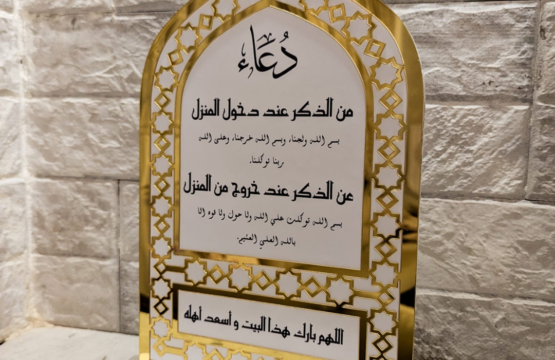 دُعَاء
من الذكر عند دخول المنزل
بسم الله ولجنا، وبسم الله خرجنا، وعلى الله
ربنا توكلنا.
عن الذكر عند خروج من المنزل
بسم الله توكلت على الله ولا حول ولا قوة الا
بالله العلي العظيم.
اللهم بارك هذا البيت و أسعد أهله